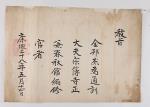 敎旨
金邦杰爲通訓
大夫宗簿寺正
兼春秋館編修
官者
康熙二十八年五月日